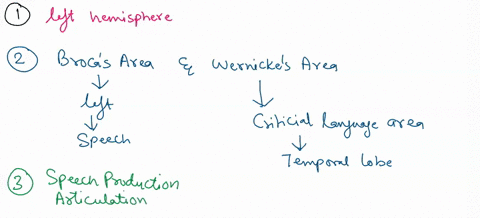 1 left hemisphere
2 Broca's Area & Wernicke's Area
left
Speech
Criticial Language area
Temporal lobe
3 Speech Production
Articulation